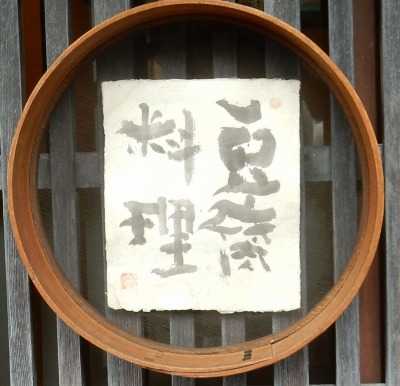 豆腐
料理